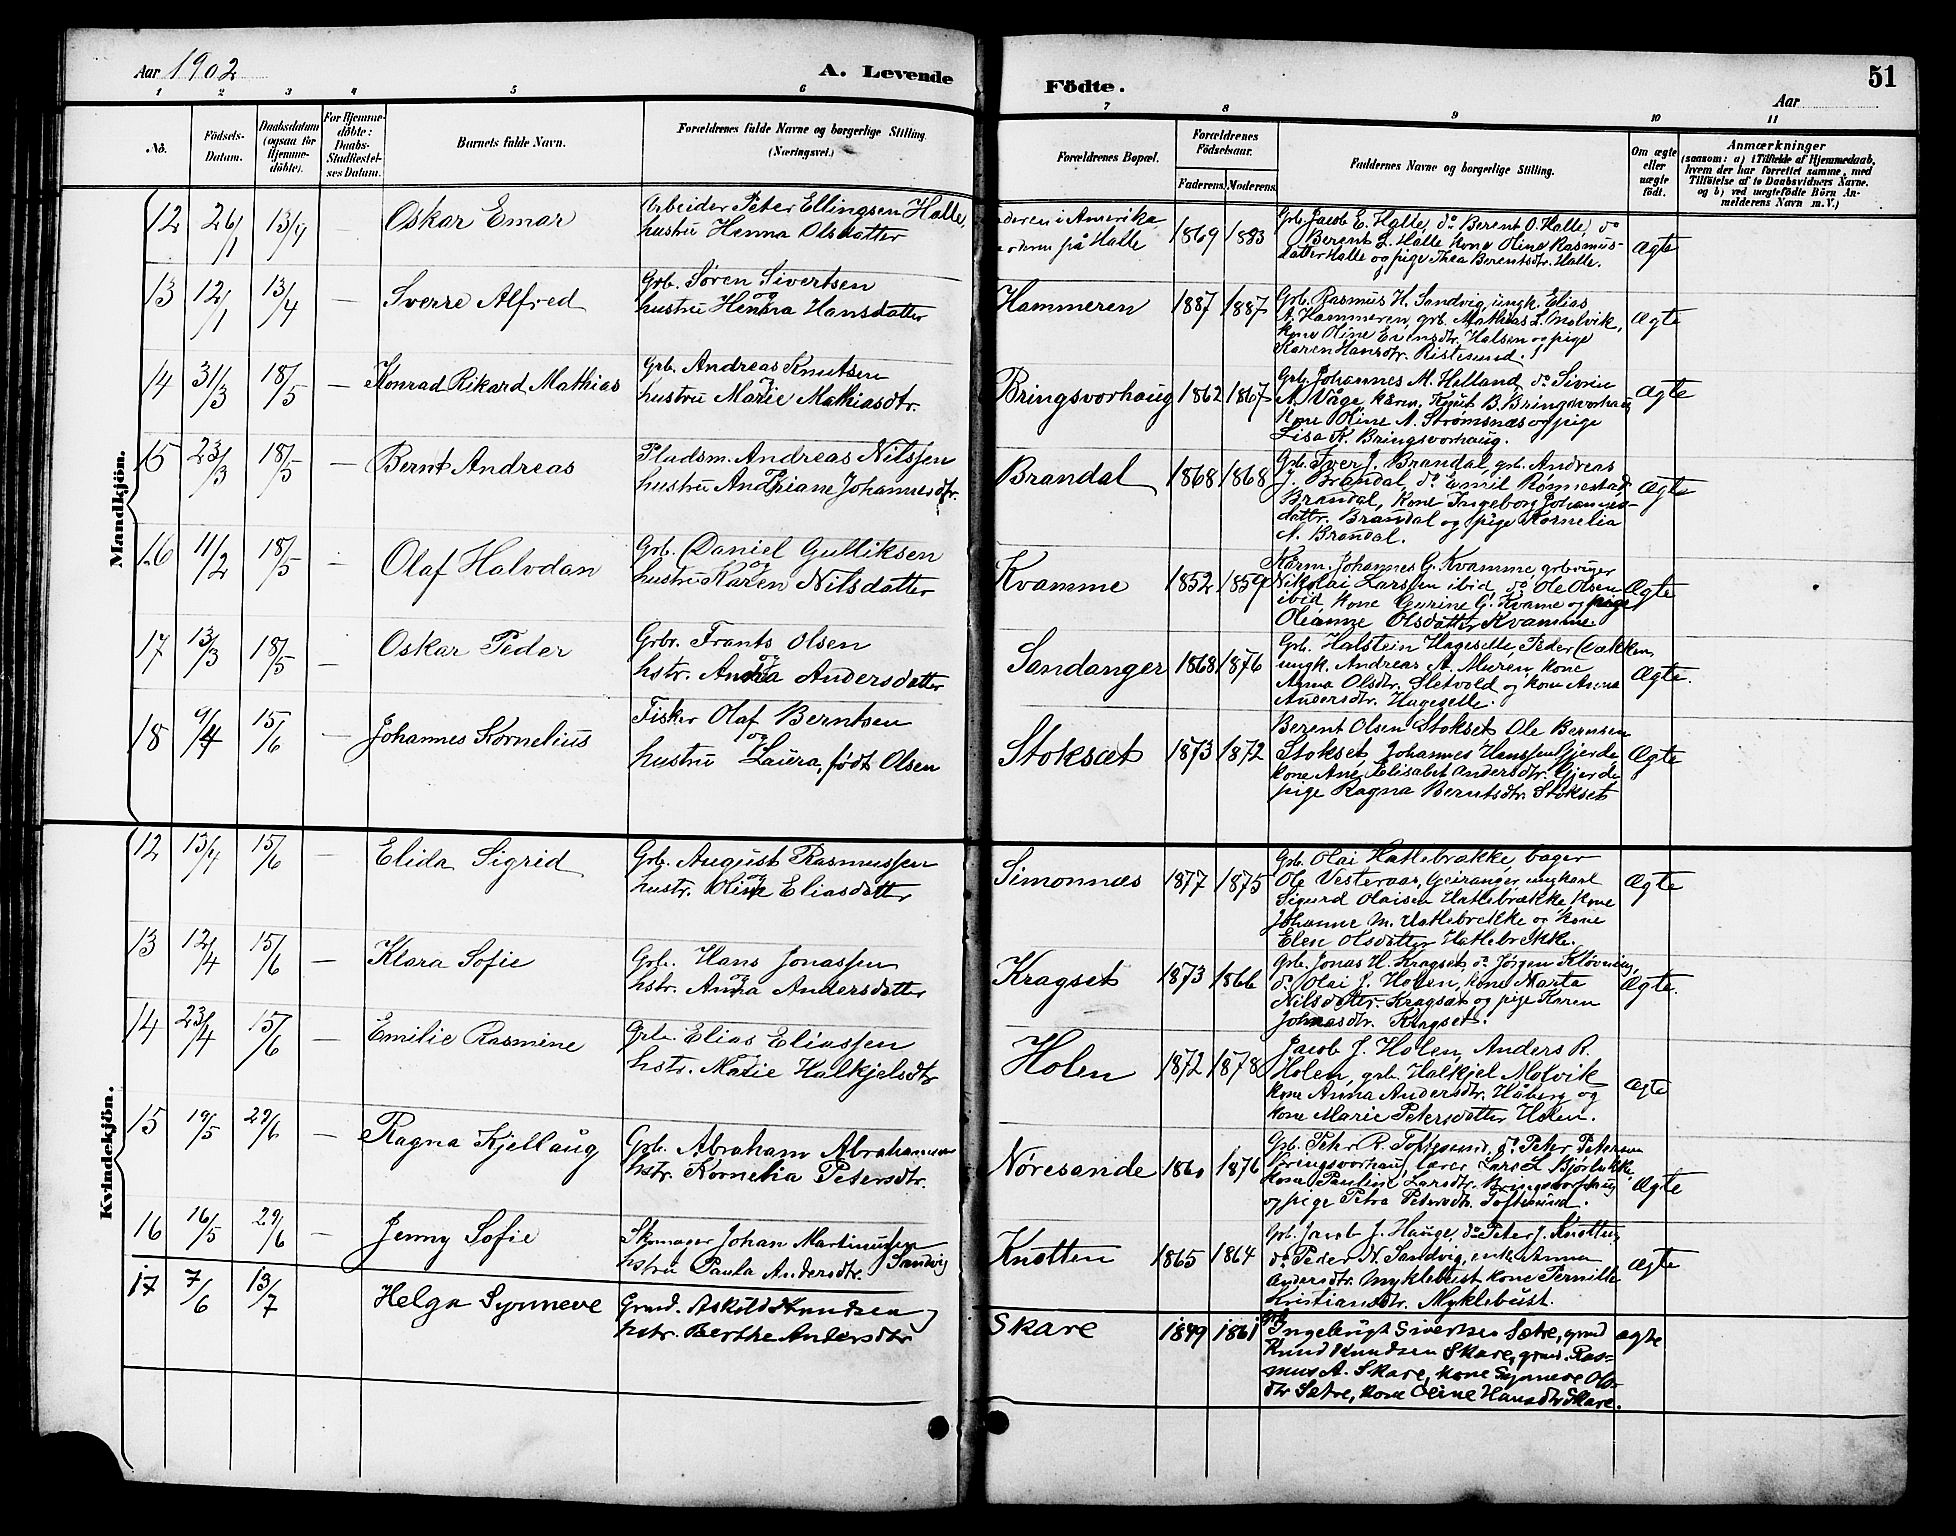 Aar 1902
A. Levende
Födte.
Aar
51
1 2 3 4 5 6
7 8 9 10 11
No.
Födsels-
Datum.
Daabsdatum
(ogsaa for
Hjemme-
döbte).
For Hjemme-
döbte:
Daabs-
Stadfæstel-
ses Datum.
Barnets fulde Navn.
Forældrenes fulde Navne og borgerlige Stilling.
(Næringsvei.)
Forældrenes Bopæl.
Forældrenes
Födselsaar.
Faderens. Moderens.
Faddernes Navne og borgerlige Stilling.
Om ægte
eller
uægte
födt.
Anmærkninger
(saasom: a) i Tilfælde af Hjemmedaab,
hvem der har forrettet samme, med
Tilföielse af to Daabsvidners Navne,
og b) ved uægtefödte Börn An-
melderens Navn m. V.)
Mandkjön.
12 26/1 13/4 — Oskar Emar
Arbeider Peter Ellingsen Halle,
hustru Hanna Olsdatter
deren i Amerika
oderen på Halle
1869 1883
Grb. Jacob E. Halle, do Berent O. Halle, do
Berent L. Halle kone Oline Rasmus-
datter Halle og pige Thea Berentsdtr. Halle.
Ægte
13 12/1 13/4 — Sverre Alfred
Grb. Søren Sivertsen
og
hustru Henna Hansdatter
Hammeren
1887 1887
Grb. Rasmus H. Sandvig, ungk. Elias
A. Hammeren, grb. Mathias L. Molvik,
kone Oline Evensdtr. Halsen og pige
Karen Hansdtr. Ristesund.
Ægte
14 31/3 18/5 — Konrad Rikard Mathias
Grb. Andreas Knutsen
og
hustru Marie Mathiasdtr.
Bringsvorhaug
1862 1867
Grb. Johannes M. Helland, do Sivrin
A. Våge kårm. Knut B. Bringsvorhaug
kone Oline A. Strømsnæs og pige
Lisa K. Bringsvorhaug.
Ægte
15 23/3 18/5 — Bernt Andreas
Pladsm. Andreas Nilssen
og
hustru Andriane Johannesdtr.
Brandal
1868 1868
Grb. Iver J. Brandal, grb. Andreas
J. Brandal, do Emil Rønnestad
Brandal, kone Ingeborg Johannes-
dattr. Brandal og pige Kornelia
A. Brandal.
Ægte
16 11/2 18/5 — Olaf Halvdan
Grb. Daniel Gulliksen
og
hustru Karen Nilsdatter
Kvamme
1852 1859
Kårm. Johannes G. Kvamme, grbruger
Nikolai Larssen ibid, do Ole Olsen
ibid, kone Gurine G. Kvame og pige
Oleanne Olsdatter Kvamme.
Ægte
17 13/3 18/5 — Oskar Peder
Grbr. Frants Olsen
og
hstr. Anna Andersdatter
Sandanger
1868 1876
Grb. Halstein Hageselle, Peder
ungk. Andreas A. Muren, kone
Anna Olsdtr. Sletvold og kone Anna
Andersdtr. Hageselle.
Ægte.
18 9/4 15/6 — Johannes Kornelius
Fisker Olaf Berntsen
og
hustru Laura, født Olsen
Stoksæt
1873 1872
Berent Olsen Stokset Ole Bernsen
Stokset, Johannes Hanssen Gjerde
kone Ane Elisabet Andersdtr. Gjerde
pige Ragna Berntsdtr. Stokset
Ægte
Kvindekjön.
12 13/4 15/6 — Elida Sigrid
Grb. August Rasmussen
og
hustr. Oline Eliasdatter
Simonnæs
1877 1875
Grb. Olai Hatlebrække, bager
Ole Vesteraas, Geiranger, ungkarl
Sigurd Olaisen Hatlebrække kone
Johanne M. Hatlebrekke og kone
Elen Olsdatter Hatlebrekke.
Ægte
13 12/4 15/6 — Klara Sofie
Grb. Hans Jonassen
og
hstr. Anna Andersdatter
Kragset
1873 1866
Grb. Jonas H. Kragset, do Jørgen Kløvning,
do Olai J. Holen, kone Marta
Nilsdatter Kragsæt og pige Karen
Johnasdtr. Kragset.
Ægte.
14 23/4 15/6 — Emilie Rasmine
Grb. Elias Eliassen
og
hstr. Marie Halkjelsdtr
Holen
1872 1878
Jacob J. Holen, Anders R.
Holen, grb. Halkjel Molvik
kone Anna Andersdtr. Håberg og
kone Marie Petersdatter Holen.
Ægte
15 19/5 29/6 — Ragna Kjellaug
Grb. Abraham Abrahamsen
hstr. Kornelia Petersdtr.
Nøresande
1860 1876
Grb. Peter R. Toftesund, do Peter Petersen
Bringsvorhaug, lærer Lars L. Bjørlykke
kone Pauline Larsdtr. Bringsvorhaug
og pige Petra Petersdtr. Toftesund.
Ægte
16 16/5 29/6 — Jenny Sofie
Skomager Johan Martinussen
Sandvig
hstru Paula Andersdtr.
Knotten
1865 1864
Grb. Jacob J. Hauge, do Peter J. Knotten,
do Peder N. Sandvig, enke Anna
Andersdtr. Myklebust kone Pernille
Kristiansdtr. Myklebust.
Ægte
17 7/6 13/7 Helga Synneve
Grund. Askold Knudsen
hstr. Berthe Andersdtr
Skare
1849 1861
Grb.
Ingebrigt Sivertsen Sætre, grund
Knud Knudsen Skare, grund. Ras-
mus A. Skare, kone Synneve Ols-
dtr Sætre, kone Oline Hansdtr Skare.
ægte